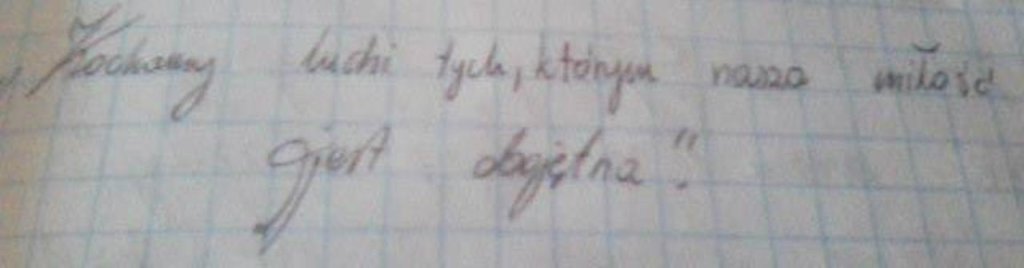 „Kochamy ludzi tych, którym nasza miłość
jest obojętna".